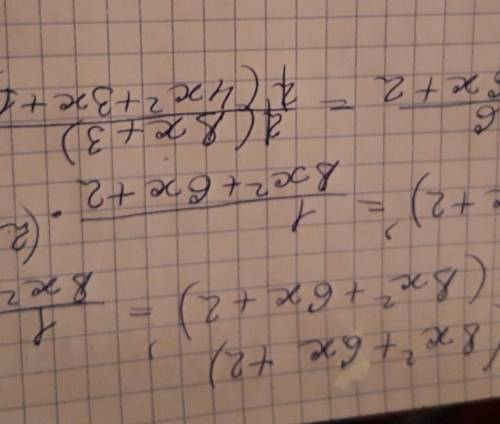 (8x²+6x +2)
(8x²+6x+2)' = 1/8x²
+2)' = 1/8x²+6x+2 · (2
6/x+2 = 2(8x+3)/2(4x²+3x+1